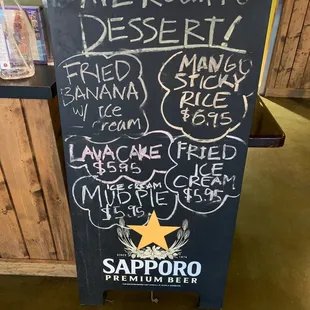 DESSERT!
FRIED
BANANA
W/ ICE
CREAM
MANGO
STICKY
RICE
$6.95
LAVA CAKE
$5.95
FRIED
ICE
CREAM
$5.95
ICE CREAM
MUD PIE
$5.95
SAPPORO
PREMIUM BEER